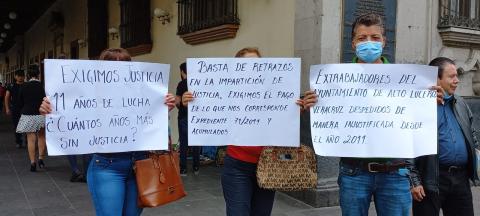 EXIGIMOS JUSTICIA
11 AÑOS DE LUCHA
¿CUÁNTOS AÑOS MÁS
SIN JUSTICIA?
BASTA DE RETRAZOS
EN LA IMPARTICIÓN DE
JUSTICIA, EXIGIMOS EL PAGO
DE LO QUE NOS CORRESPONDE
EXPEDIENTE 31/2011 Y
ACUMULADOS
EXTRABAJADORES DEL
AYUNTAMIENTO DE ALTO LUCERO
VERACRUZ DESPEDIDOS DE
MANERA INJUSTIFICADA DESDE
EL AÑO 2011